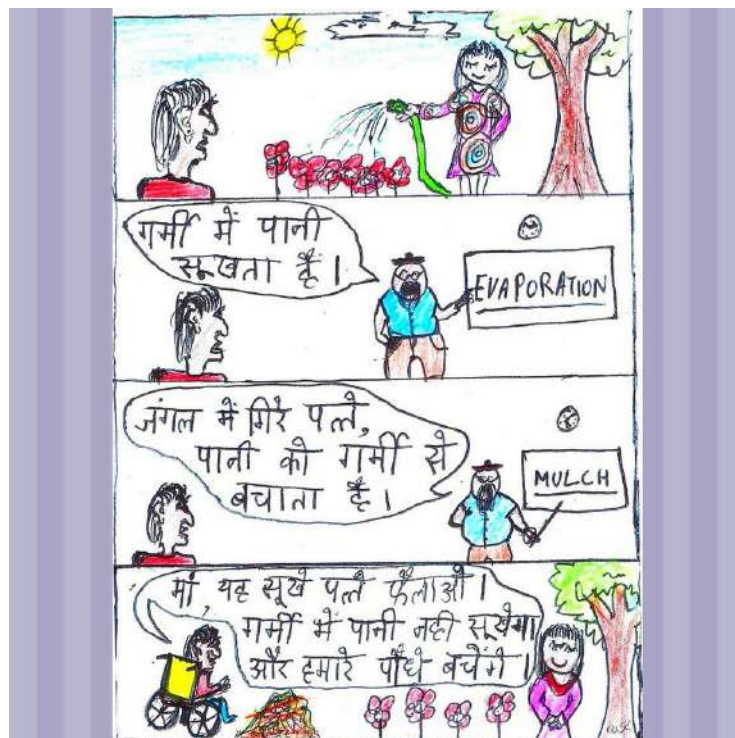 गर्मी में पानी
सूखता है।
EVAPORATION
जंगल में गिरे पत्ते,
पानी को गर्मी से
बचाता है।
MULCH
मां, यह सूखे पत्ते फैलाओ।
गर्मी में पानी नही सूखेगा
और हमारे पौधे बचेंगे।